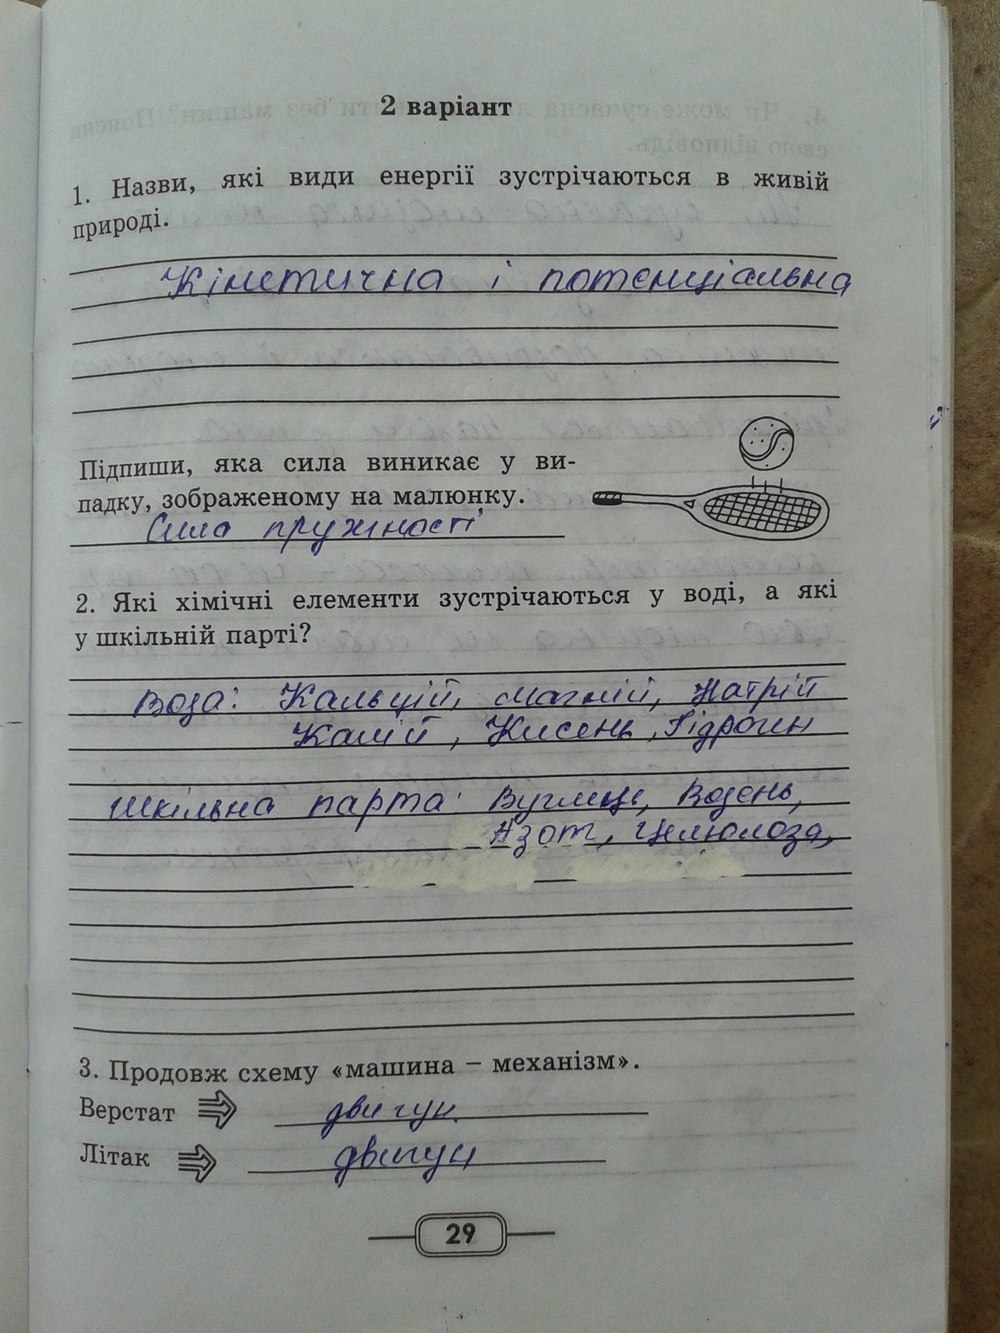 2 варіант
1. Назви, які види енергії зустрічаються в живій
природі.
Кінетична і потенціальна
Підпиши, яка сила виникає у ви-
падку, зображеному на малюнку.
Сила пружності
2. Які хімічні елементи зустрічаються у воді, а які
у шкільній парті?
Вода: Кальцій, магній, Натрій
Калій, Кисень, Гідроген
Шкільна парта: Вуглець, Водень,
Азот, Целюлоза,
3. Продовж схему «машина – механізм».
Верстат двигун
Літак двигун
29